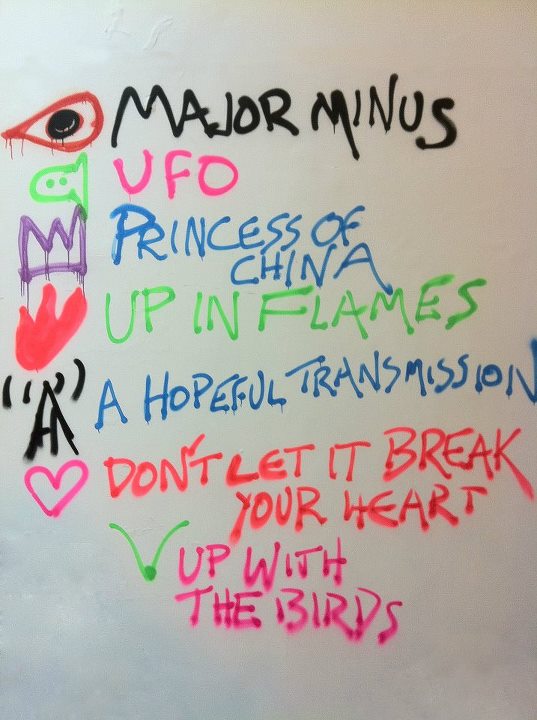 MAJOR MINUS
UFO
PRINCESS OF
CHINA
UP IN FLAMES
A HOPEFUL TRANSMISSION
DON'T LET IT BREAK
YOUR HEART
UP WITH
THE BIRDS